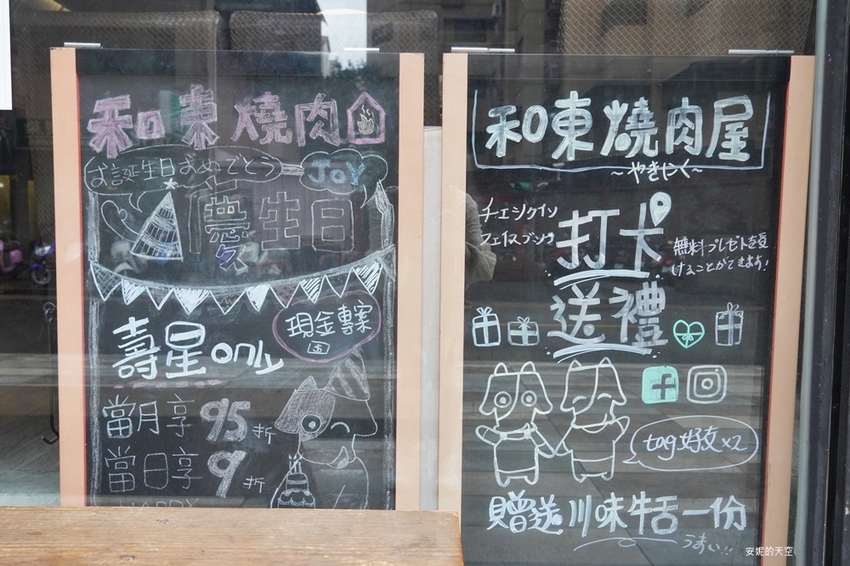 和東燒肉
お誕生日おめでとう
JOY
慶生日
壽星only
現金專案
當月享 95折
當日享 9折
和東燒肉屋
~やきにく~
チェックイン
フェイスブック
打卡
送禮
無料プレゼントを受
けることができます!
tag好友x2
贈送川味牛舌一份
うまい!!
安妮的天空